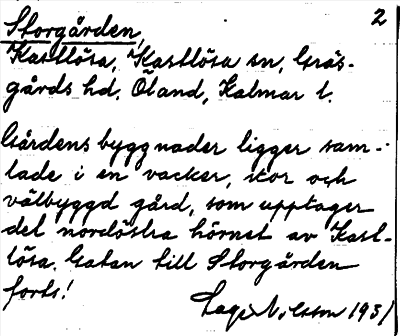 2
Storgården,
Kastlösa, Kastlösa sn, Gräs-
gårds hd. Öland, Kalmar l.
Gårdens byggnader ligger sam-
lade i en vacker, stor och
välbyggd gård, som upptager
det nordöstra hörnet av Kast-
lösa. Gatan till Storgården
forts!
Lage Nilsson 1931